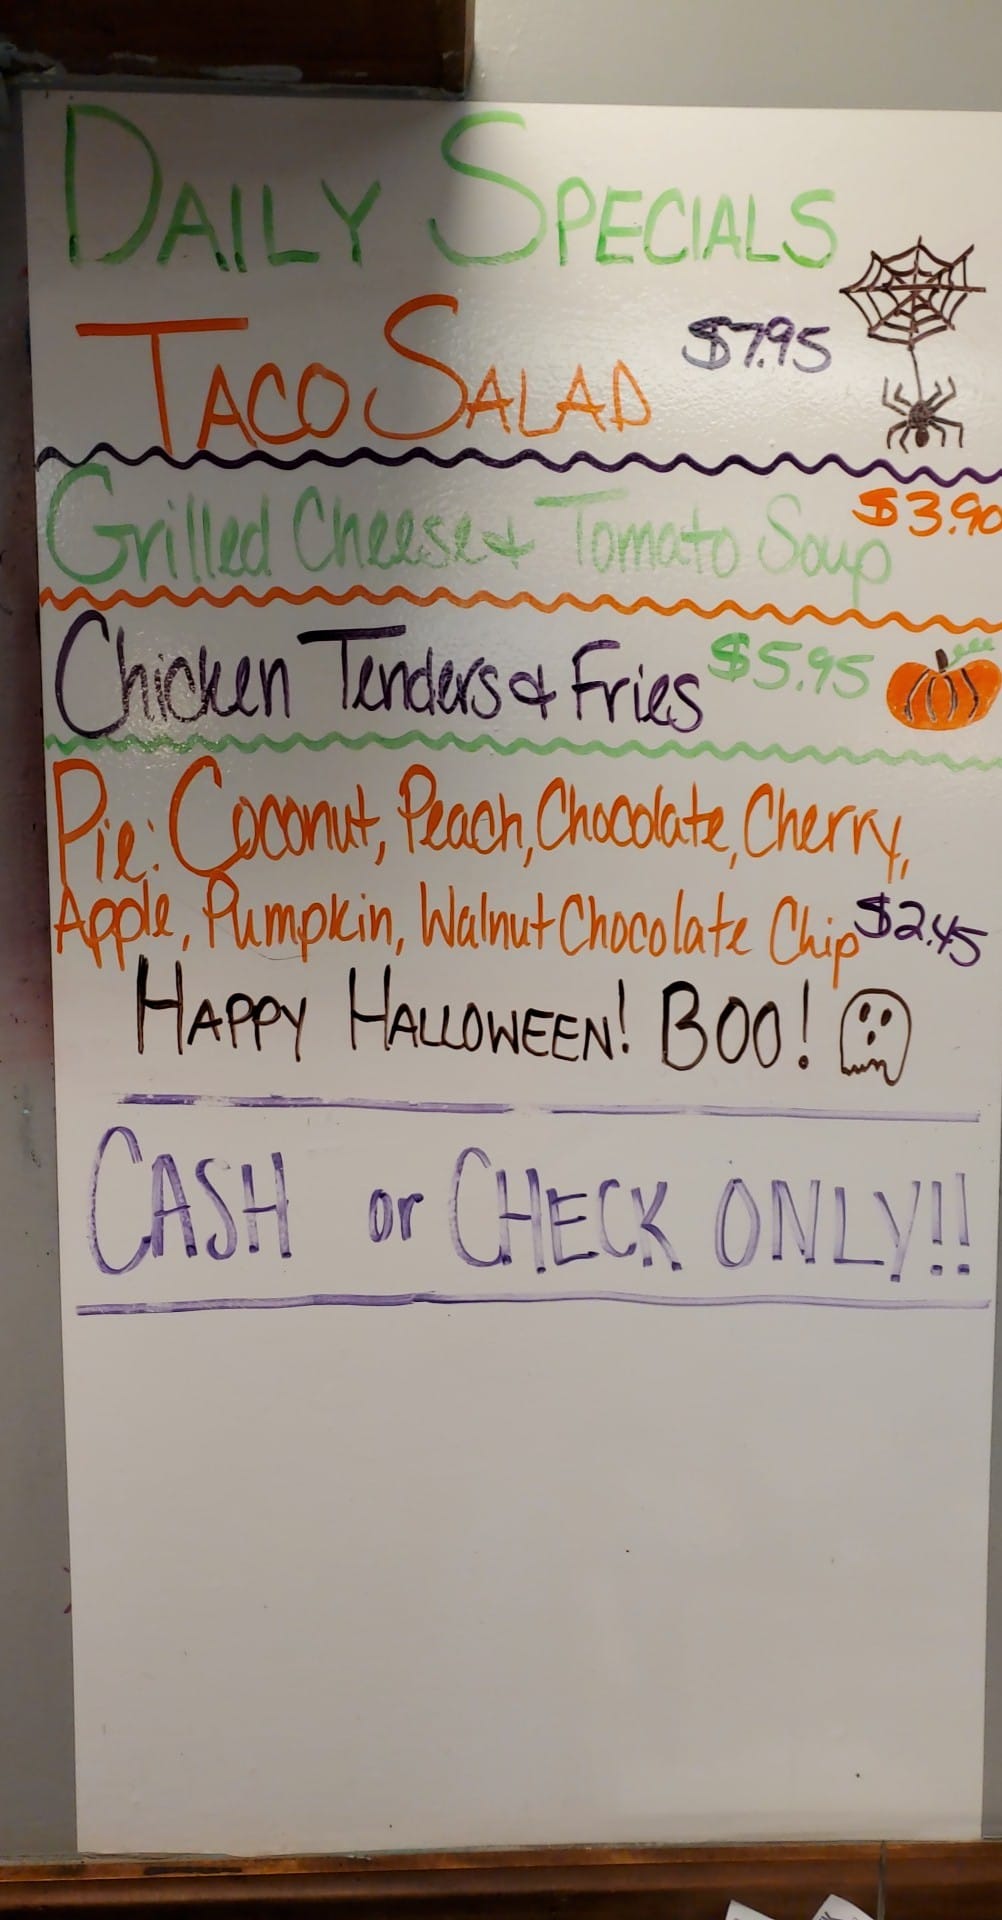 DAILY SPECIALS
TACO SALAD $7.95
Grilled Cheese & Tomato Soup $3.90
Chicken Tenders & Fries $5.95
Pie: Coconut, Peach, Chocolate, Cherry,
Apple, Pumpkin, Walnut Chocolate Chip $2.45
HAPPY HALLOWEEN! BOO!
CASH or CHECK ONLY!!